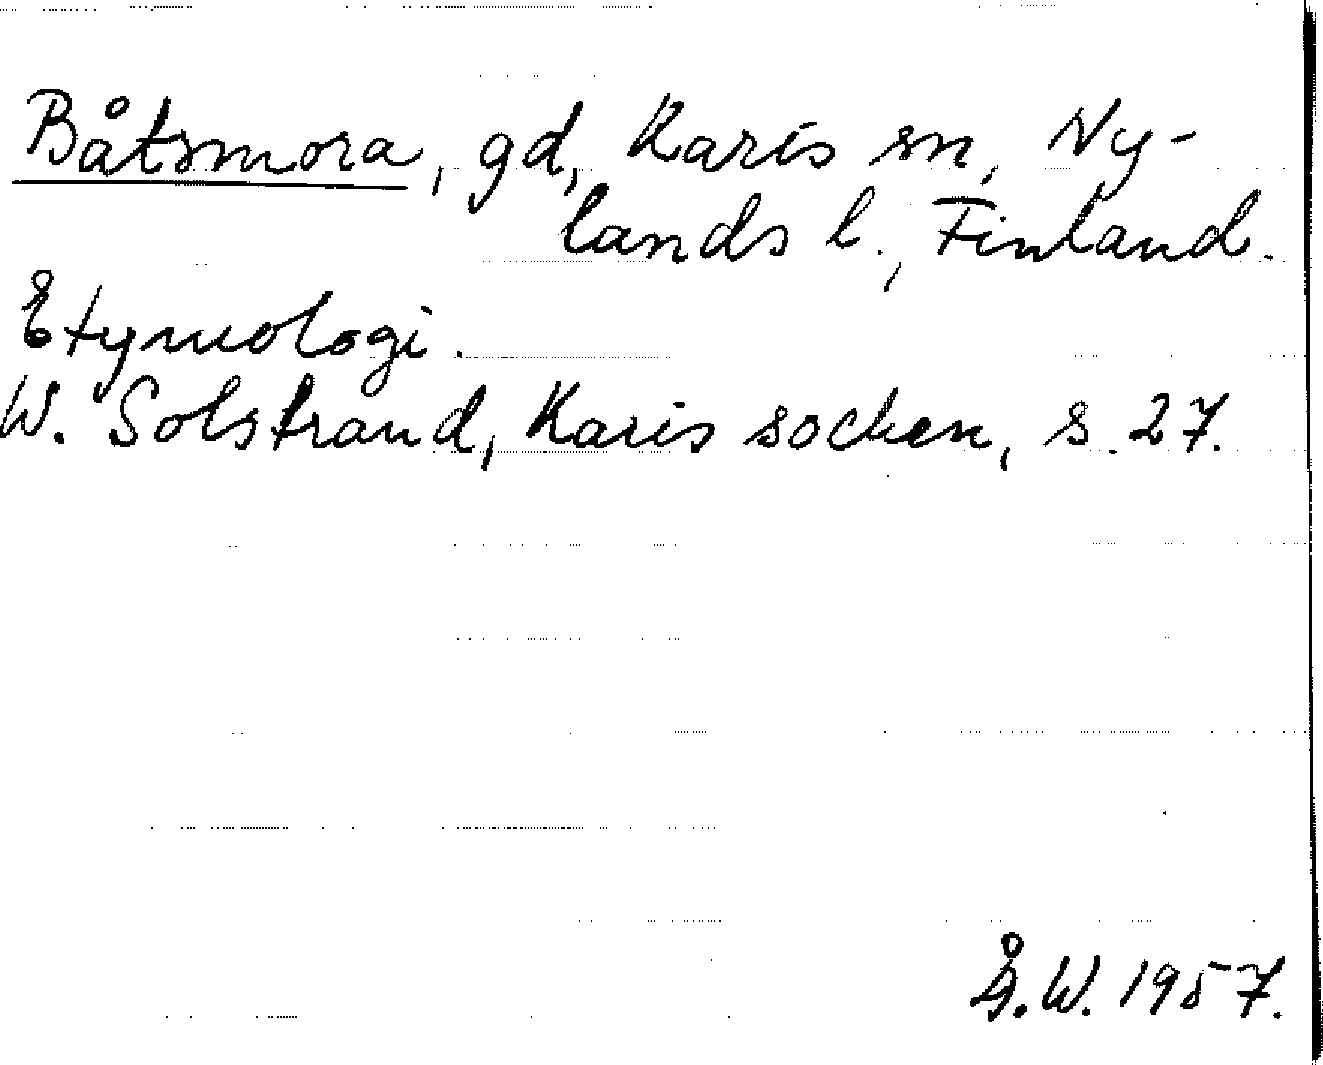 Båtsmora, gd, Karis sn, Ny-
lands l., Finland.
Etymologi.
W. Solstrand, Karis socken, s. 27.
Å.W. 1957.